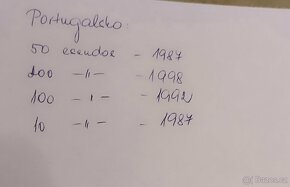 Portugalsko:
50 escudos - 1987
200 -"- - 1998
100 -"- - 1992
10 -"- - 1987
Bazos.cz